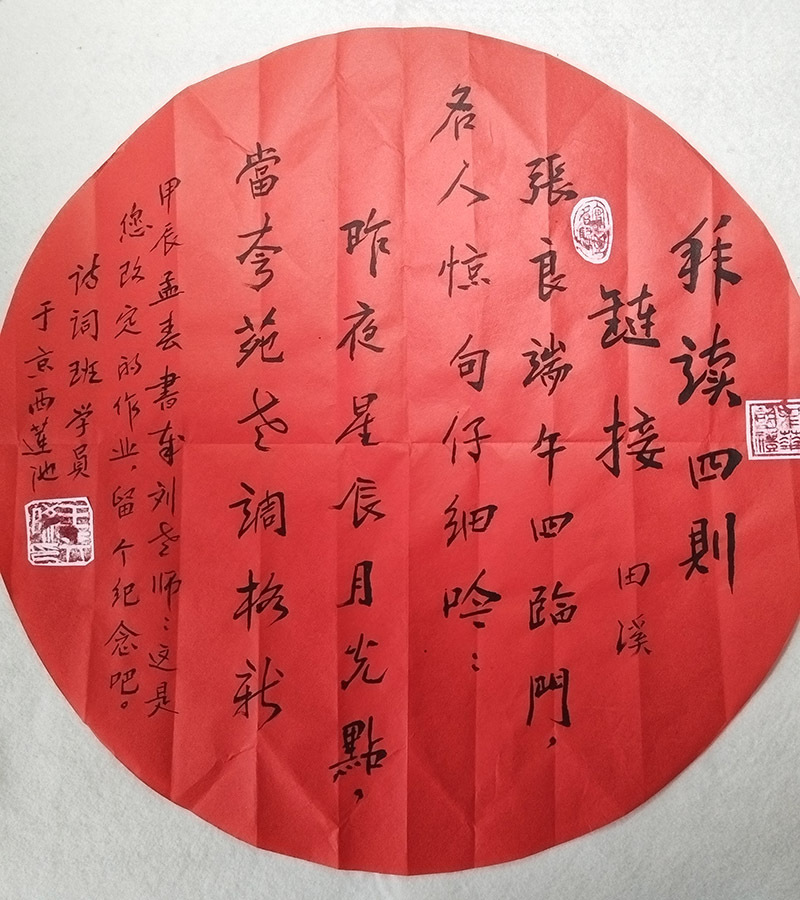 拜读四則
鏈接 田溪
張良端午四臨門，
名人惊句仔细吟：
昨夜星辰月光點，
當夸苑老調格新
甲辰孟春書奉刘老师：这是
您改定的作业，留个纪念吧。
诗词班学員
于京西蓮池